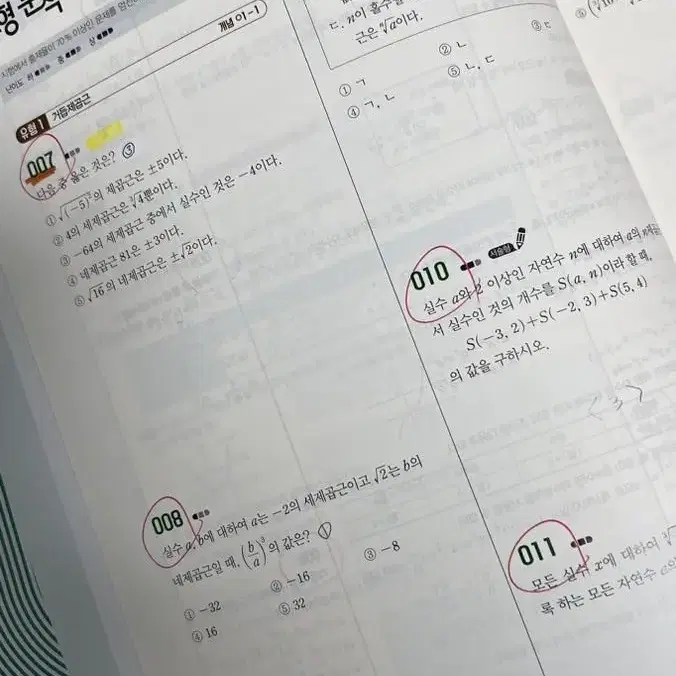 시험에서 출제율이 70% 이상인 문제를 엄선
난이도 하 중 상
개념 01-1
유형 1 거듭제곱근
007
다음 중 옳은 것은? ③
① √(-5)²의 제곱근은 ±5이다.
② 4의 세제곱근은 ³√4뿐이다.
③ -64의 세제곱근 중에서 실수인 것은 -4이다.
④ 네제곱근 81은 ±3이다.
⑤ √16의 네제곱근은 ±√2이다.
008
실수 a, b에 대하여 a는 -2의 세제곱근이고 √2는 b의
네제곱근일 때, (b/a)³의 값은? ①
① -32
② -16
③ -8
④ 16
⑤ 32
ㄷ. n이 홀수
근은 ⁿ√a이다.
① ㄱ
② ㄴ
③ ㄷ
④ ㄱ, ㄴ
⑤ ㄴ, ㄷ
010 서술형
실수 a와 2 이상인 자연수 n에 대하여 a의
서 실수인 것의 개수를 S(a, n)이라 할 때,
S(-3, 2)+S(-2, 3)+S(5, 4)
의 값을 구하시오.
3
011
모든 실수 x에 대하여
록 하는 모든 자연수